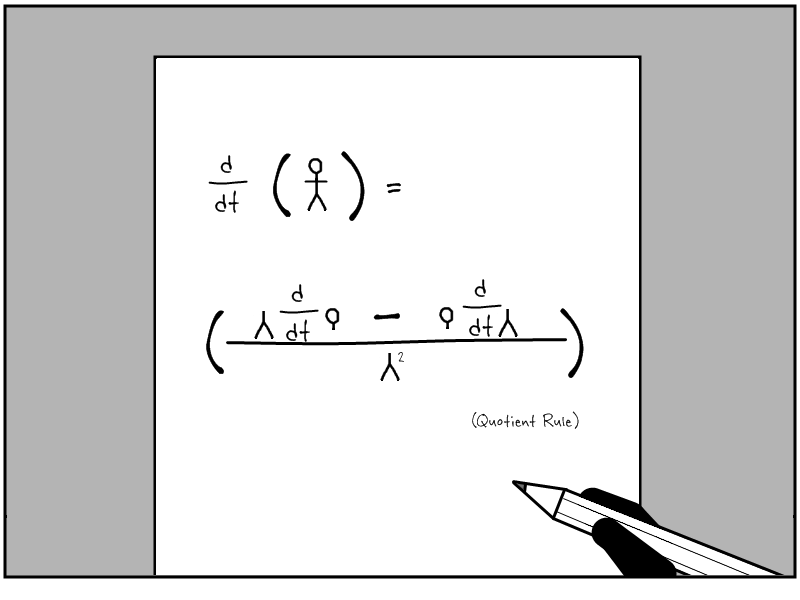 d
dt ( ) =
d d
dt - dt
2
(Quotient Rule)